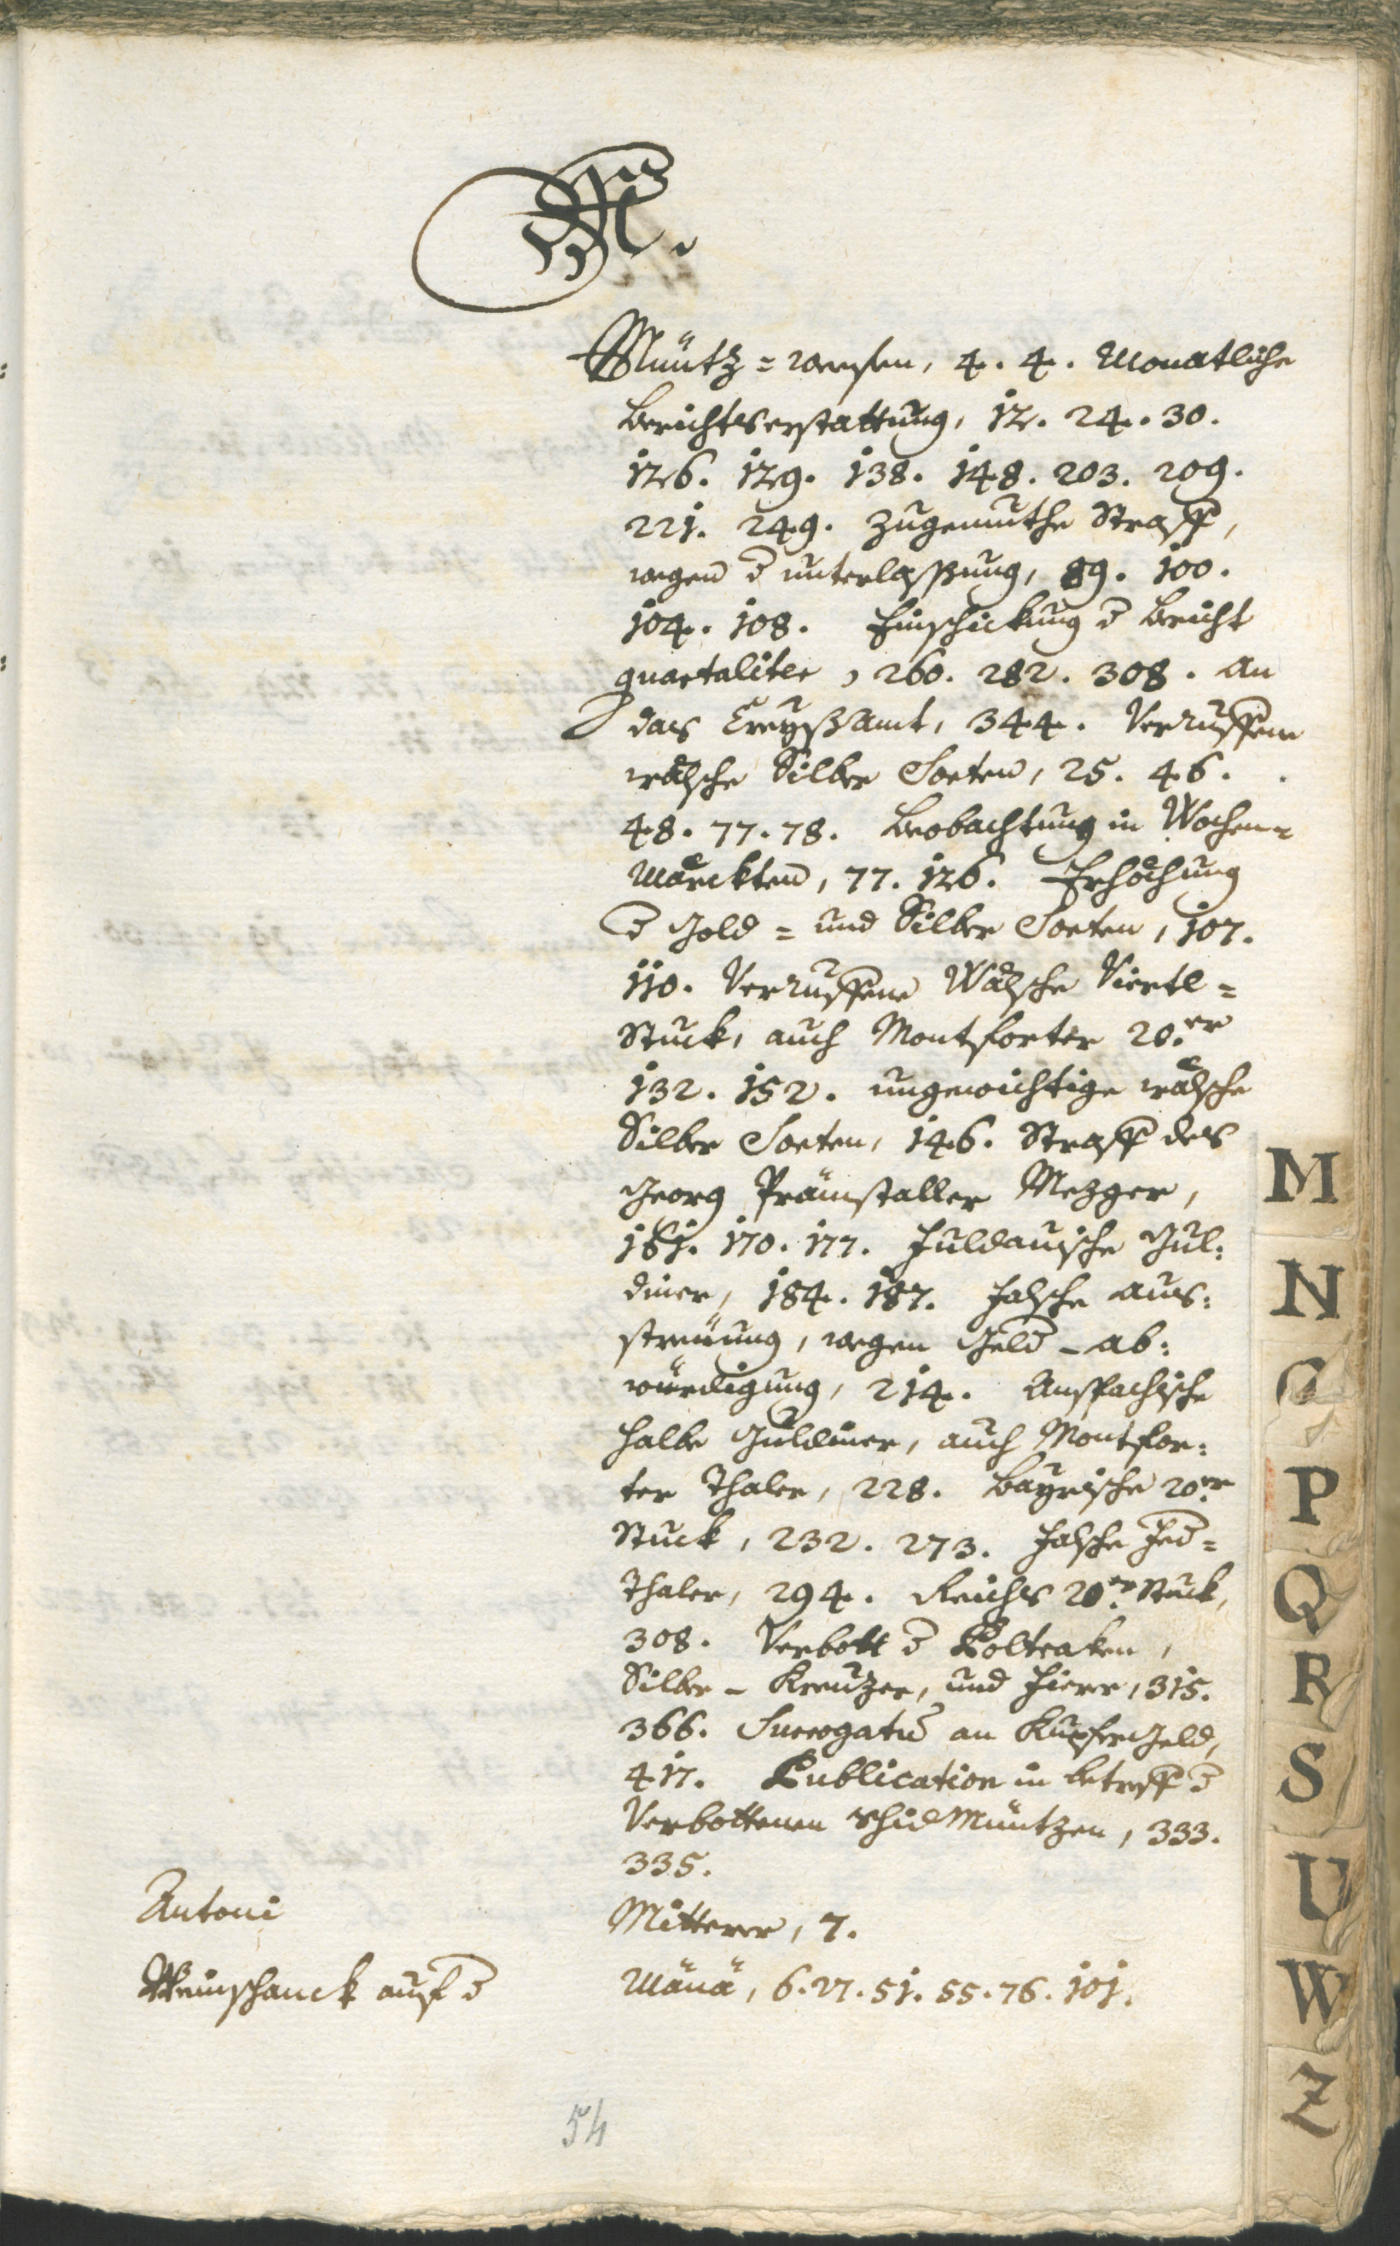 M.
Müntz=weesen, 4. 4. Monatliche
Berichtserstattung, 12. 24. 30.
126. 129. 138. 148. 203. 209.
221. 249. Zugemuthe Straff,
wegen d unterlassung, 89. 100.
104. 108. Einschickung d Bericht
quartaliter, 260. 282. 308. An
das Creyßamt, 344. Verruffene
wälsche Silber Sorten, 25. 46.
48. 77. 78. Beobachtung in Wochen=
Märckten, 77. 126. Erhöchung
d Gold= und Silber Sorten, 107.
110. Verruffene Wälsche Viertl=
Stuck, auch Montforter 20.er
132. 152. ungewichtige wälsche
Silber Sorten, 146. Straff des
Georg Prämstaller Mezger,
161. 170. 177. Fuldauische Gul:
diner, 184. 187. falsche aus:
streüung, wegen Geld-ab:
würdigung, 214. Anspachische
halbe Guldiner, auch Montfor:
ter Thaler, 228. Bayrische 20.er
Stuck, 232. 273. falsche Fed=
Thaler, 294. Reichs 20.er Stuck,
308. Verbott d Poltraken,
Silber-Kreuzer, und Fierer, 315.
366. Surrogatū an Kupfergeld,
417. Publication in betreff d
Verbottenen Schid Müntzen, 333.
335.
Antoni Mitterer, 7.
Weinschanck auf d Mänä, 6. 27. 51. 55. 76. 101.
54
M
N
O
P
Q
R
S
U
W
Z